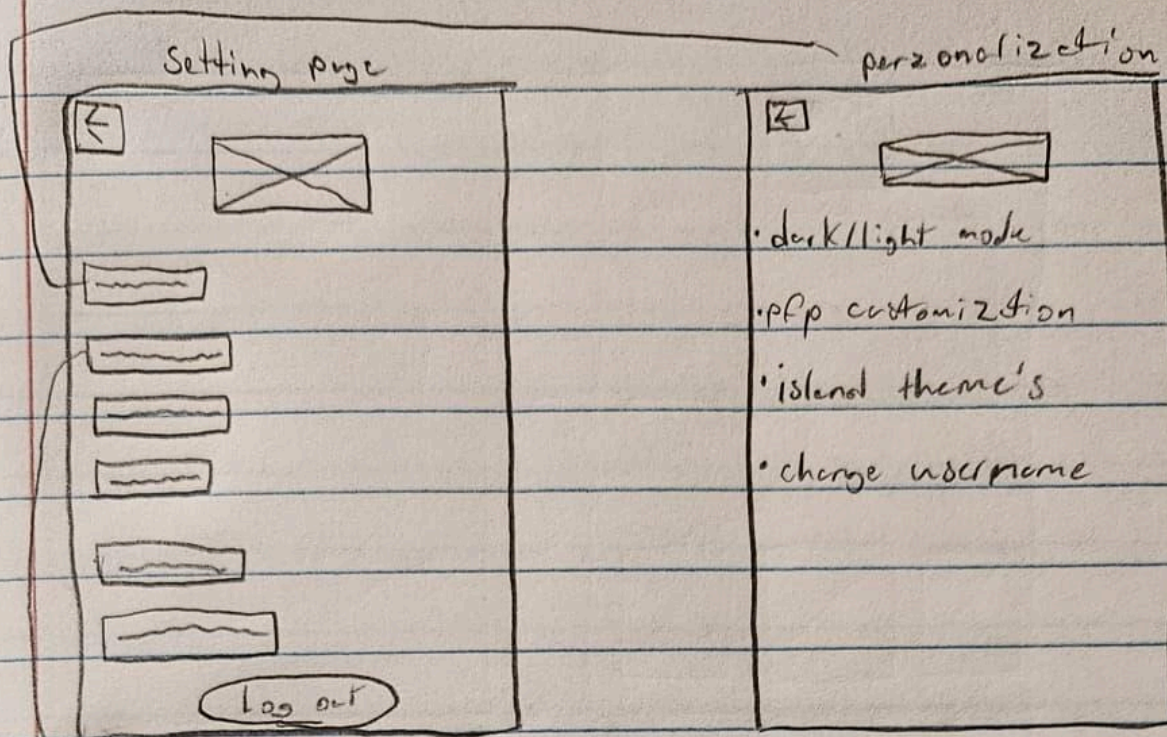 Setting page
Log out
perzonalization
• dark/light mode
• pfp customization
• island theme's
• change username